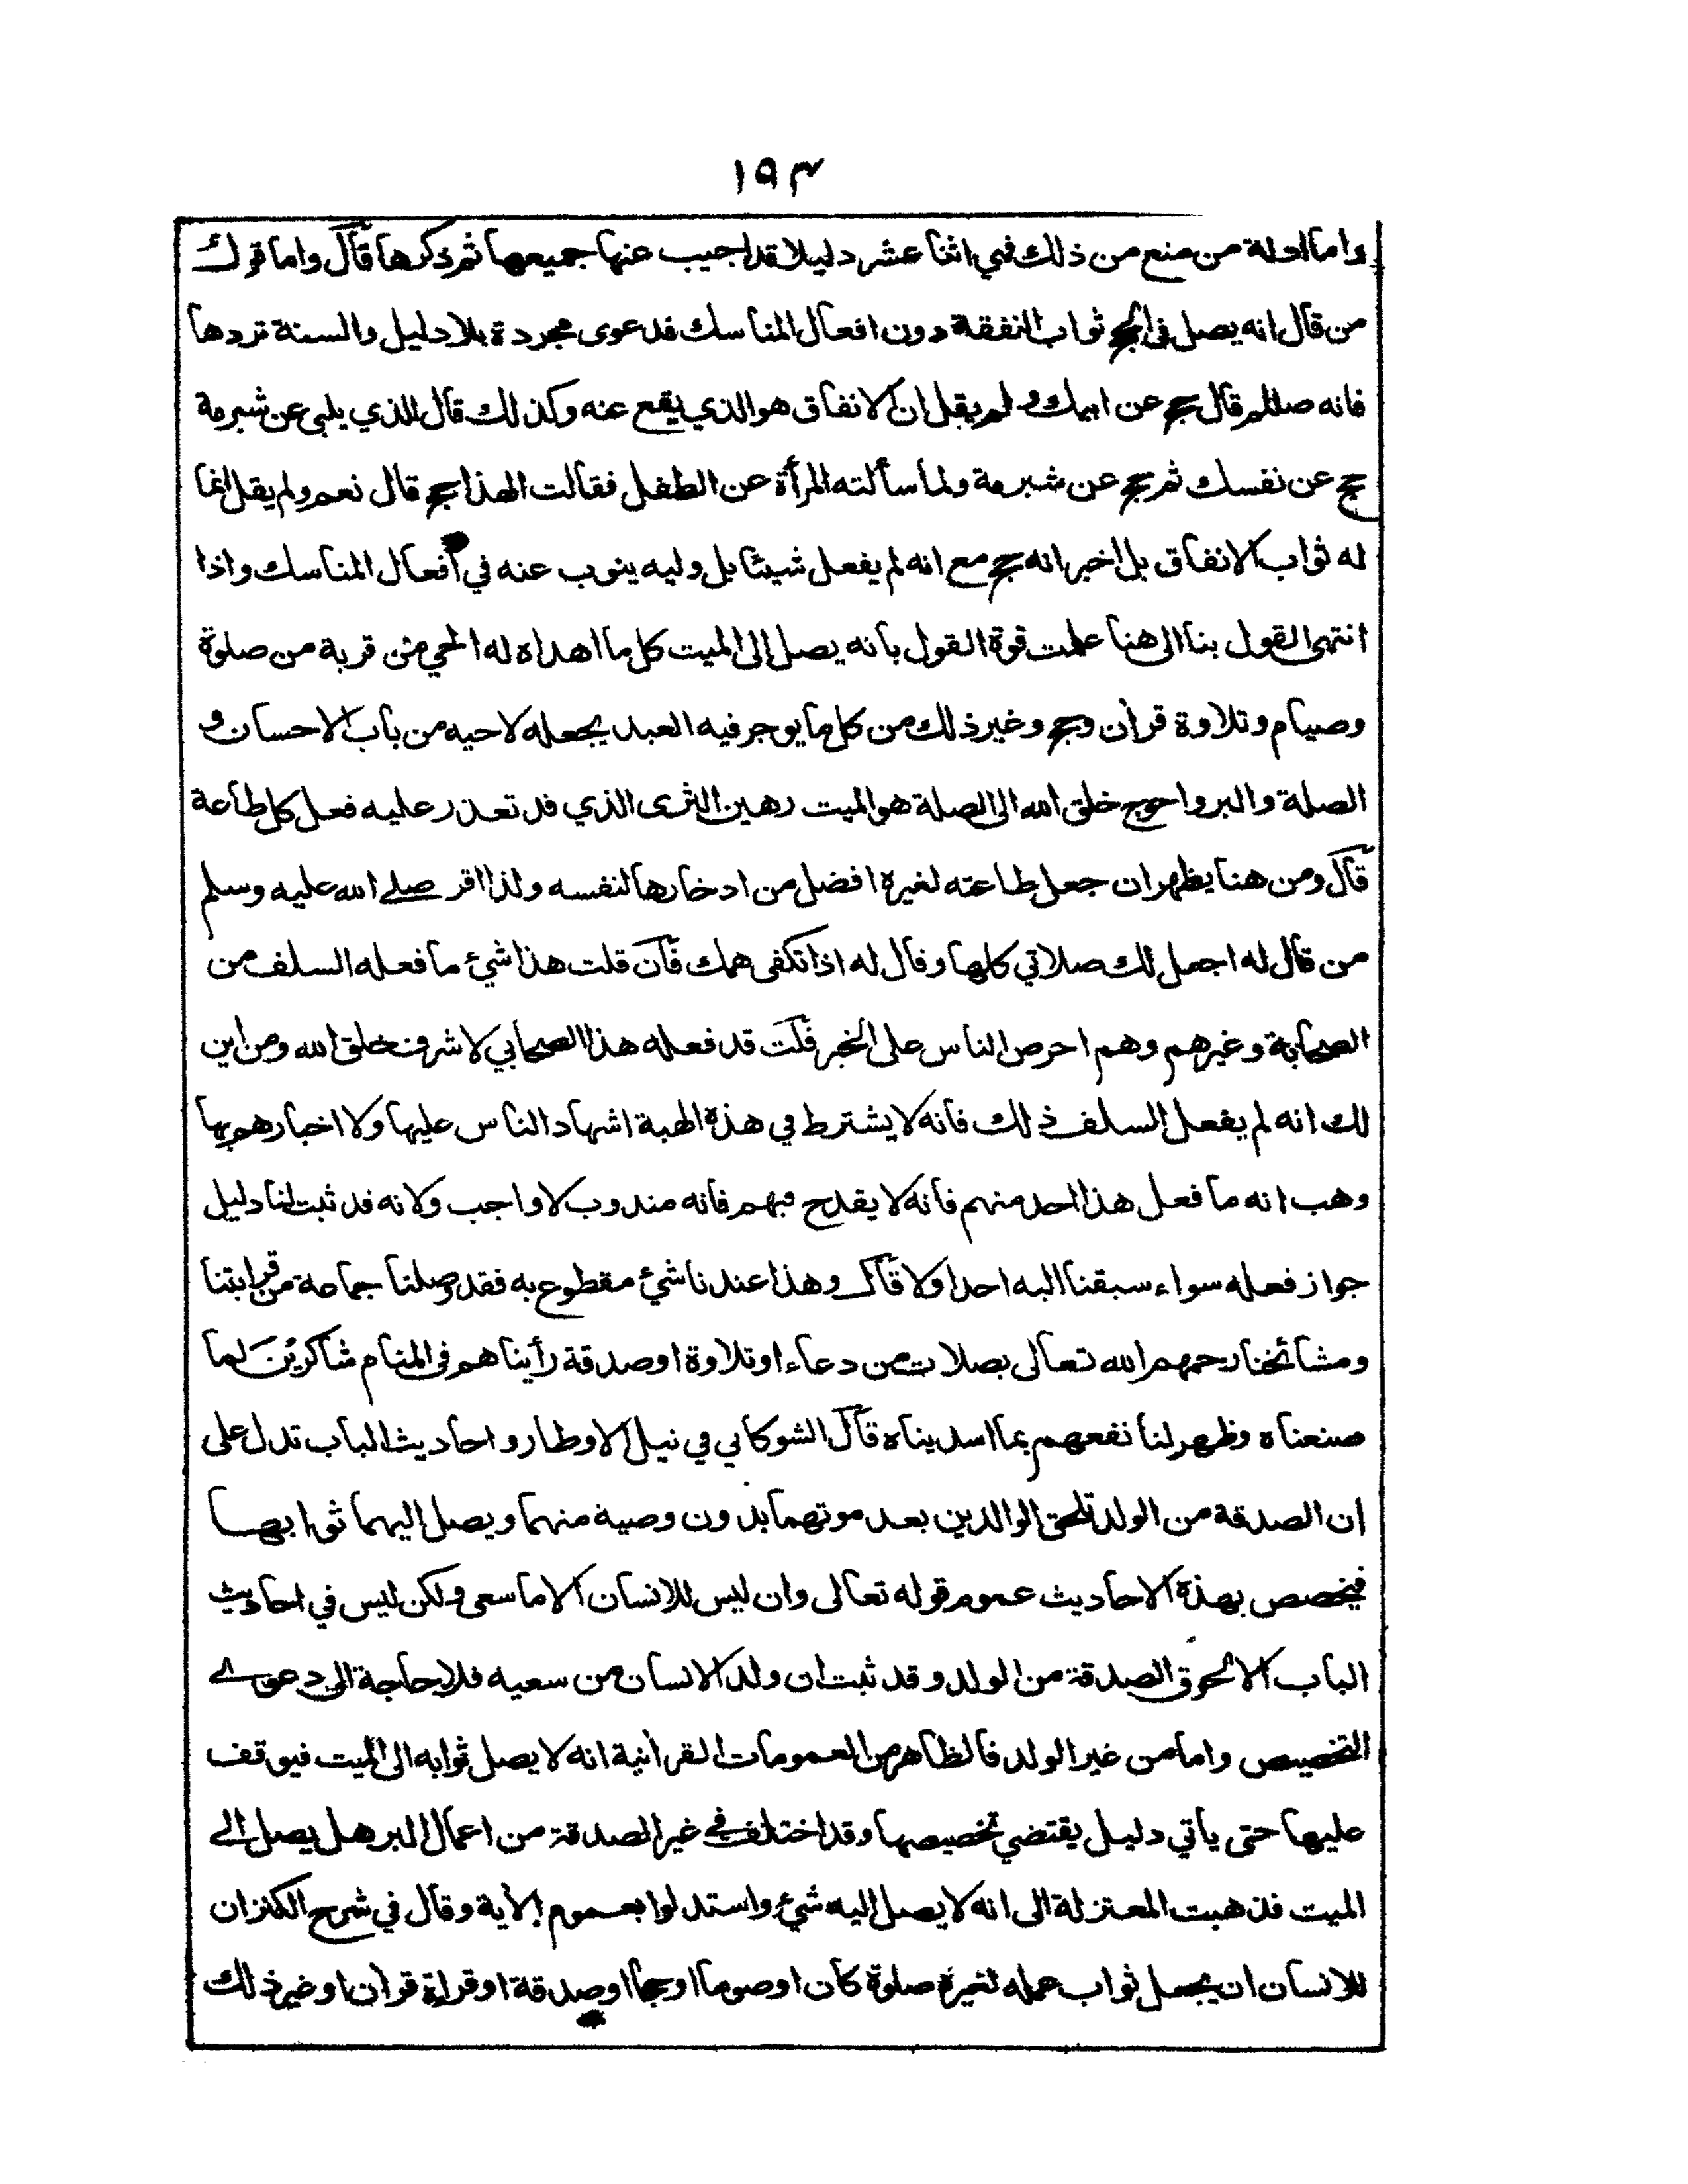 ١٩٣
واما ادلة من منع من ذلك فهي اثنا عشر دليلا قد اجيب عنها جميعها ثم ذكرها قال واما قول
من قال انه يصل في الحج ثواب النفقة دون افعال المناسك فدعوى مجردة بلا دليل والسنة تردها
فانه صللم قال حج عن ابيك ولم يقل ان الانفاق هو الذي يقع عنه وكذلك قال للذي يلبي عن شبرمة
حج عن نفسك ثم حج عن شبرمة ولما سألته المرأة عن الطفل فقالت الهذا حج قال نعم ولم يقل انما
له ثواب الانفاق بل اخبر انه حج مع انه لم يفعل شيئا بل وليه ينوب عنه في افعال المناسك واذا
انتهى القول بنا الى هنا علمت قوة القول بانه يصل الى الميت كل ما اهداه له الحي من قربة من صلوة
وصيام وتلاوة قرآن وحج وغير ذلك من كل ما يوجر فيه العبد يجعله لاخيه من باب الاحسان و
الصلة والبر واحوج خلق الله الى الصلة هو الميت رهين الثرى الذي قد تعذر عليه فعل كل طاعة
قال ومن هنا يظهر ان جعل طاعته لغيره افضل من ادخارها لنفسه ولذا اقر صلے الله عليه وسلم
من قال له اجعل لك صلاتي كلها وقال له اذا تكفى همك فان قلت هذا شئ ما فعله السلف من
الصحابة وغيرهم وهم احرص الناس على الخير قلت قد فعله هذا الصحابي لاشرف خلق الله ومن اين
لك انه لم يفعل السلف ذلك فانه لا يشترط في هذه الهبة اشهاد الناس عليها ولا اخبارهم بها
وهب انه ما فعل هذا احد منهم فانه لا يقدح فيهم فانه مندوب لا واجب ولانه قد ثبت لنا دليل
جواز فعله سواء سبقنا اليه احد اولا قال وهذا عندنا شئ مقطوع به فقد وصلنا جماعة من قرابتنا
ومشائخنا رحمهم الله تعالى بصلات من دعاء او تلاوة او صدقة رأيناهم في المنام شاكرين لما
صنعناه وظهر لنا نفعهم بما اسديناه قال الشوكاني في نيل الاوطار واحاديث الباب تدل على
ان الصدقة من الولد تلحق الوالدين بعد موتهما بدون وصية منهما ويصل اليهما ثوابها
فيخصص بهذه الاحاديث عموم قوله تعالى وان ليس للانسان الا ما سعى ولكن ليس في احاديث
الباب الا لحوق الصدقة من الولد وقد ثبت ان ولد الانسان من سعيه فلا حاجة الى دعوے
التخصيص واما من غير الولد فالظاهر من العمومات القرانية انه لا يصل ثوابه الى الميت فيوقف
عليها حتى ياتي دليل يقتضي تخصيصها وقد اختلف في غير الصدقة من اعمال البر هل يصل الے
الميت فذهبت المعتزلة الى انه لا يصل اليه شئ واستدلوا بعموم الاية وقال في شرح الكنز ان
للانسان ان يجعل ثواب عمله لغيره صلوة كان او صوما او حجا او صدقة او قراءة قران او غير ذلك